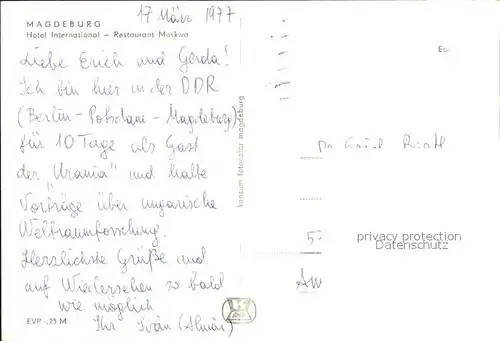 17 März 1977
MAGDEBURG
Hotel International – Restaurant Moskwa
Liebe Erich und Gerda!
Ich bin hier in der DDR
(Berlin - Potsdam - Magdeburg)
für 10 Tage als Gast
der "Urania" und halte
Vorträge über ungarische
Weltraumforschung.
Herzlichste Grüße und
auf Wiedersehen so bald
wie möglich
Ihr Iván (Almár)
EVP -,25 M
konsum fotocolor magdeburg
privacy protection
Datenschutz